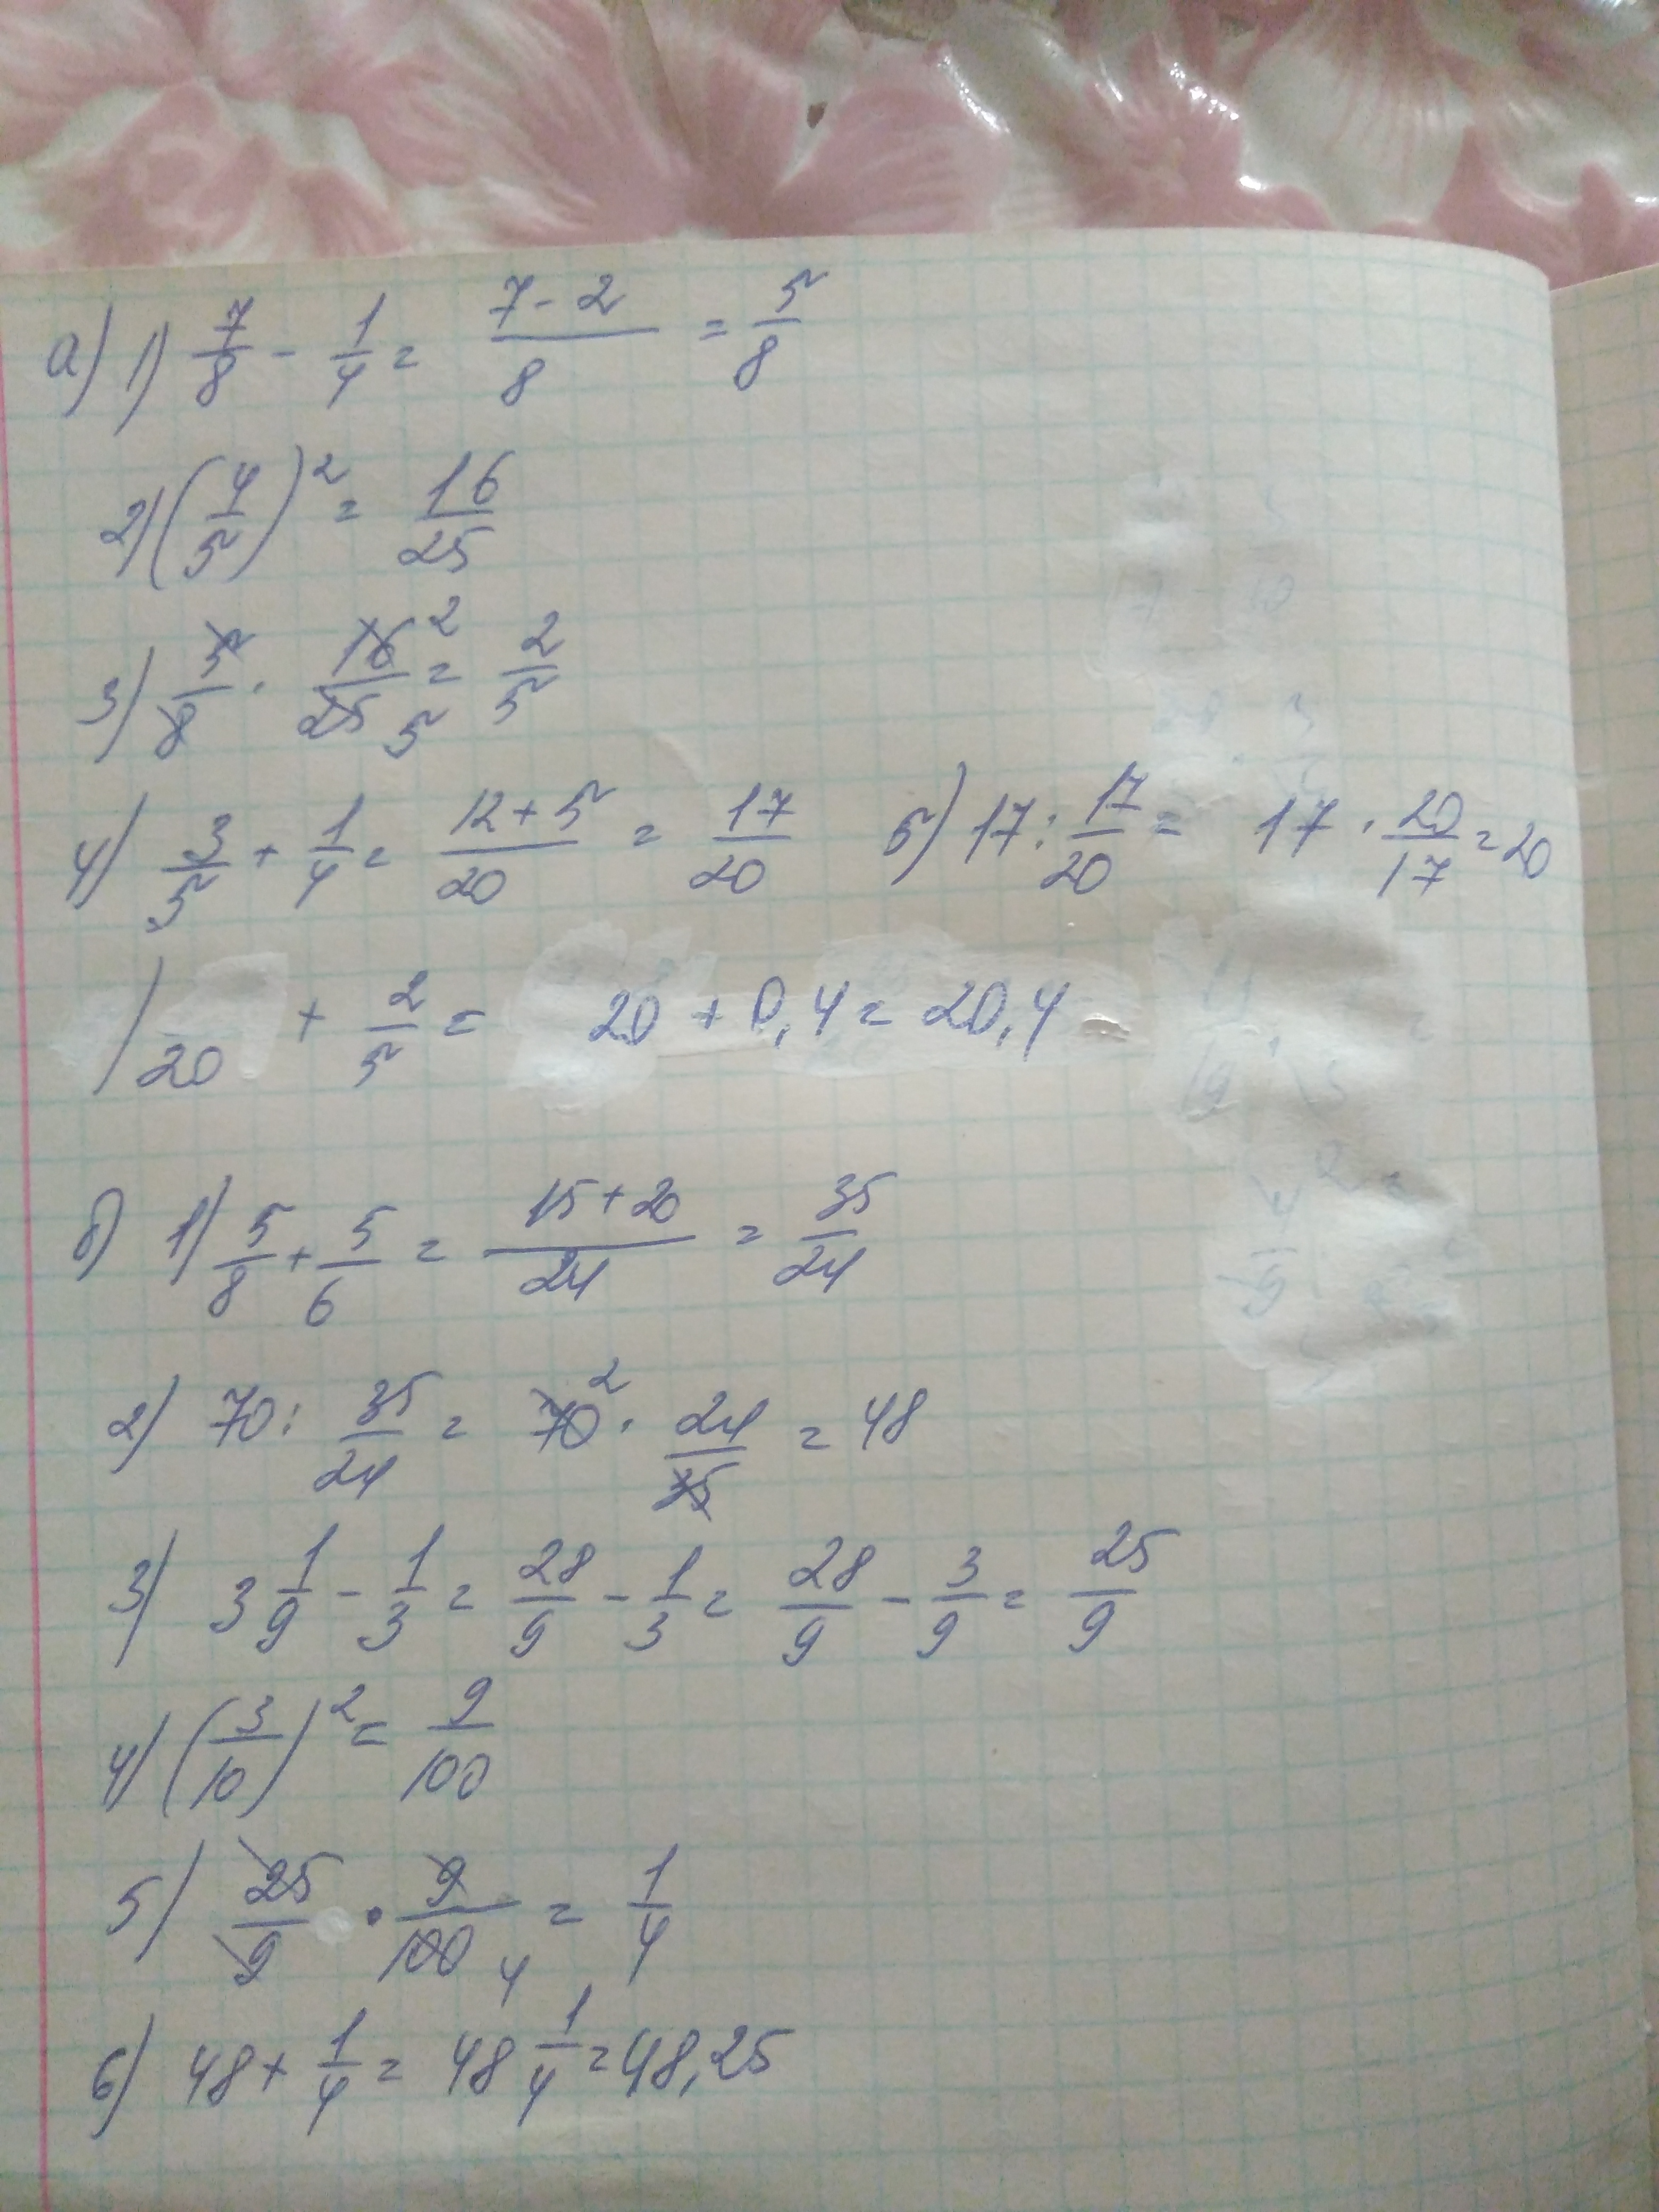 а) 1) 7/8 - 1/4 = (7-2)/8 = 5/8
2) (4/5)² = 16/25
3) 5/8 · 16/25 = 2/5
4) 3/5 + 1/4 = (12+5)/20 = 17/20 5) 17 : 17/20 = 17 · 20/17 = 20
) 20 + 2/5 = 20 + 0,4 = 20,4
б) 1) 5/8 + 5/6 = (15+20)/24 = 35/24
2) 70 : 35/24 = 70² · 24/35 = 48
3) 3 1/9 - 1/3 = 28/9 - 1/3 = 28/9 - 3/9 = 25/9
4) (3/10)² = 9/100
5) 25/9 · 9/100 4 = 1/4
6) 48 + 1/4 = 48 1/4 = 48,25